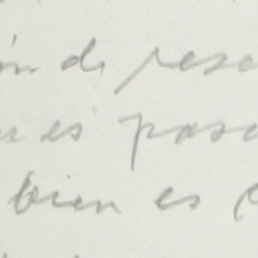 ón de rese
es pasa
bien es